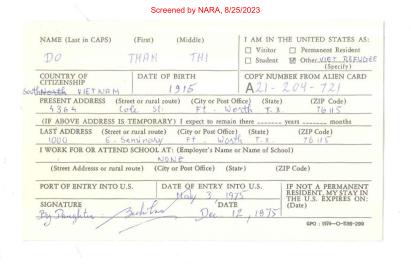 Screened by NARA, 8/25/2023
NAME (Last in CAPS) (First) (Middle)
DO THAM THI
I AM IN THE UNITED STATES AS:
☐ Visitor ☐ Permanent Resident
☐ Student ☒ Other VIET REFUGEE
(Specify)
COUNTRY OF CITIZENSHIP DATE OF BIRTH
South North VIETNAM 1915
COPY NUMBER FROM ALIEN CARD
A21-204-721
PRESENT ADDRESS (Street or rural route) (City or Post Office) (State) (ZIP Code)
4364 Cole St. Ft. Worth T.X. 76115
(IF ABOVE ADDRESS IS TEMPORARY) I expect to remain there ______ years ______ months
LAST ADDRESS (Street or rural route) (City or Post Office) (State) (ZIP Code)
1000 E. Seminary Ft. Worth T.X. 76115
I WORK FOR OR ATTEND SCHOOL AT: (Employer's Name or Name of School)
NONE
(Street Address or rural route) (City or Post Office) (State) (ZIP Code)
PORT OF ENTRY INTO U.S. DATE OF ENTRY INTO U.S.
May 3, 1975
IF NOT A PERMANENT RESIDENT, MY STAY IN THE U.S. EXPIRES ON:
(Date)
SIGNATURE DATE
By Daughter Dec 12, 1975